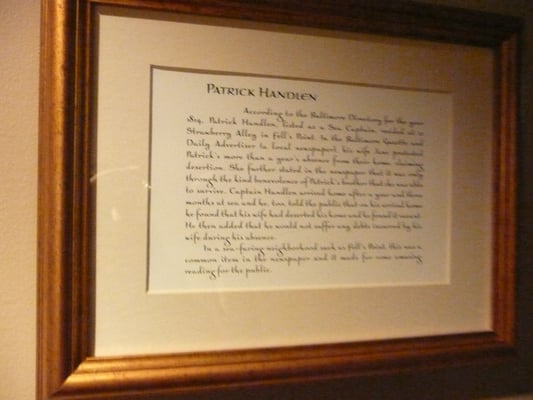 PATRICK HANDLEN
According to the Baltimore Directory for the year
1814, Patrick Handlen, listed as a Sea Captain, resided at 10
Strawberry Alley in Fell's Point. In the Baltimore Gazette and
Daily Advertiser (a local newspaper), his wife Ann protested
Patrick's more than a year's absence from their home, claiming
desertion. She further stated in the newspaper that it was only
through the kind benevolence of Patrick's brother that she was able
to survive. Captain Handlen arrived home after a year and three
months at sea and he, too, told the public that on his arrival home
he found that his wife had deserted his home and he found it vacant.
He then added that he would not suffer any debts incurred by his
wife during his absence.
In a sea-faring neighborhood such as Fell's Point, this was a
common item in the newspaper and it made for some amusing
reading for the public.